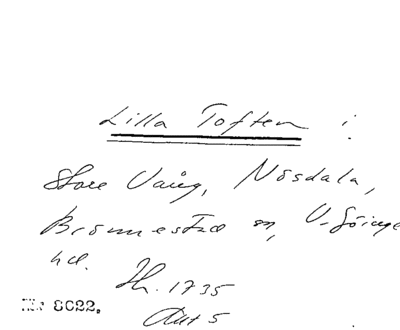 Lilla Toften i
Store Vång, Nösdala,
Brönnestad sn, V-Göinge
hd. Jh. 1735
Akt 5
Nr 8022.